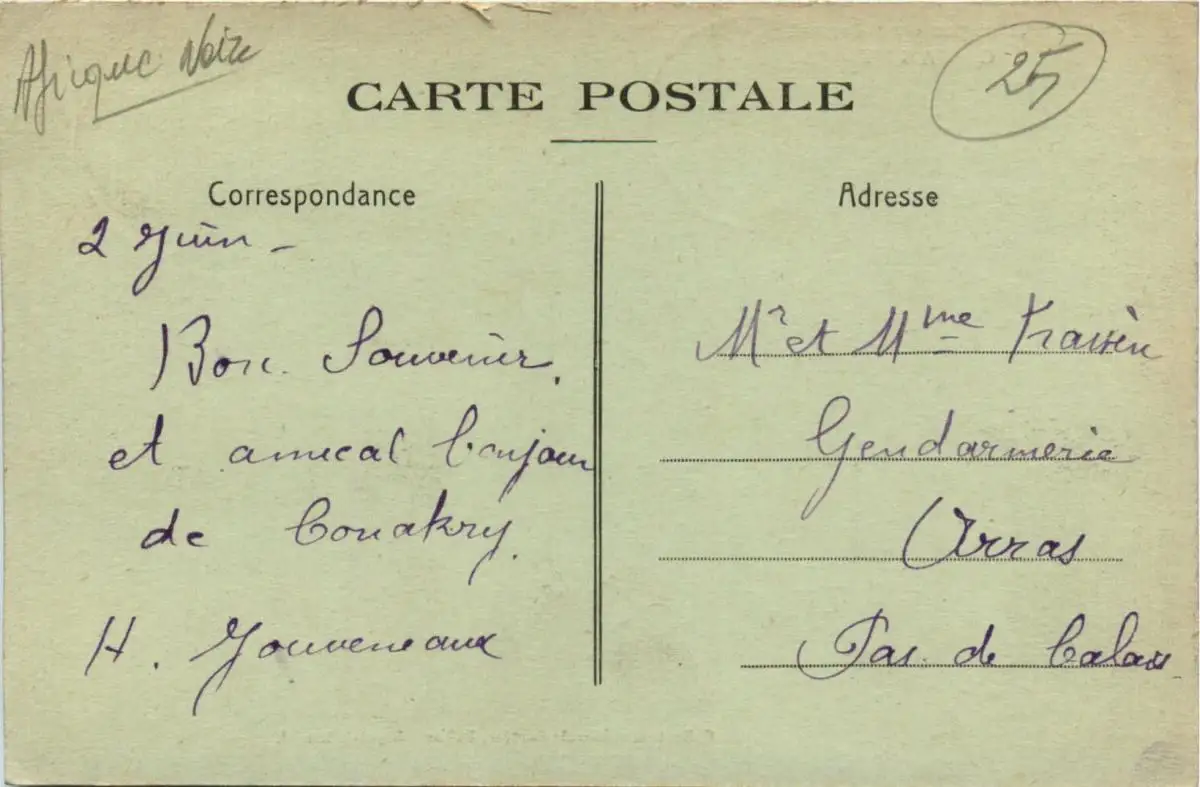 Afrique Noire
25
CARTE POSTALE
Correspondance
2 Juin -
Bon Souvenir.
et amical bonjour
de Conakry.
H. Jouveneaux
Adresse
Mr et Mme
Gendarmerie
Arras
Pas. de Calais